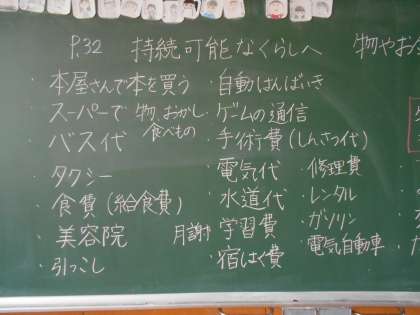 P.32 持続可能なくらしへ 物やお
・本屋さんで本を買う
・スーパーで 物、おかし、食べもの
・バス代
・タクシー
・食費(給食費)
・美容院 月謝
・引っこし
・自動はんばいき
・ゲームの通信
・手術費(しんさつ代)
・電気代
・水道代
・学習費
・宿はく費
・修理費
・レンタル
・ガソリン
・電気自動車